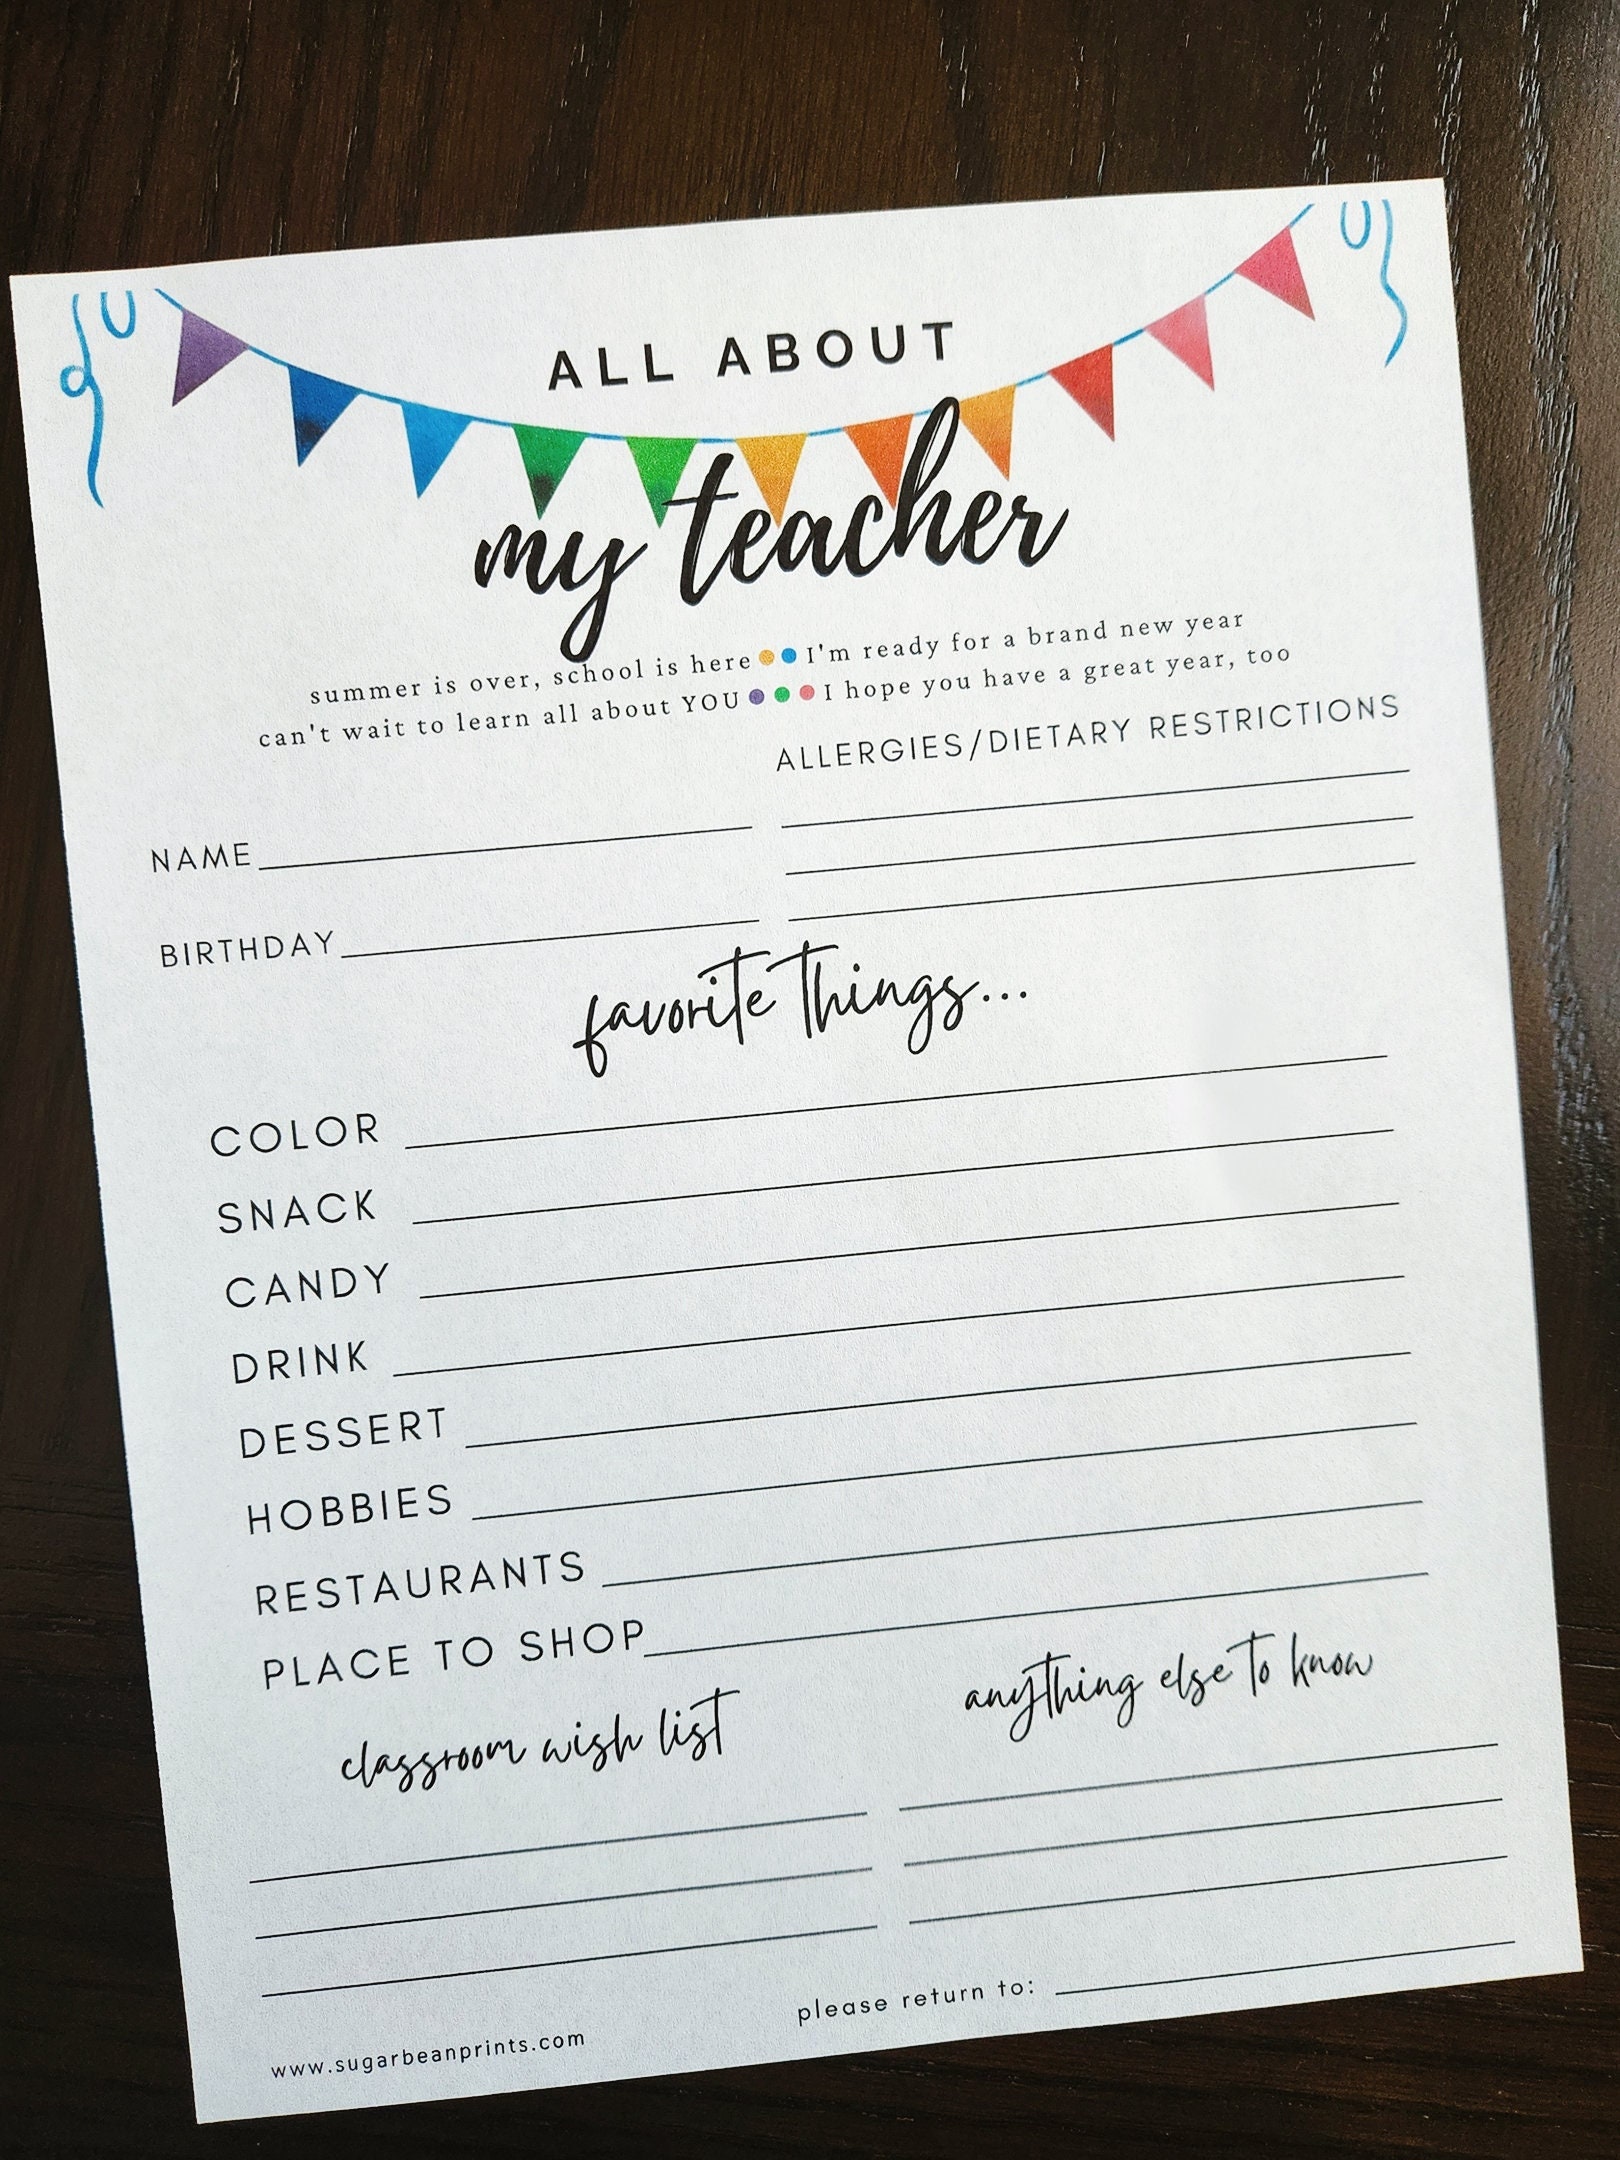 ALL ABOUT
my teacher
summer is over, school is here I'm ready for a brand new year
can't wait to learn all about YOU I hope you have a great year, too
ALLERGIES/DIETARY RESTRICTIONS
NAME
BIRTHDAY
favorite things...
COLOR
SNACK
CANDY
DRINK
DESSERT
HOBBIES
RESTAURANTS
PLACE TO SHOP
classroom wish list
anything else to know
please return to:
www.sugarbeanprints.com